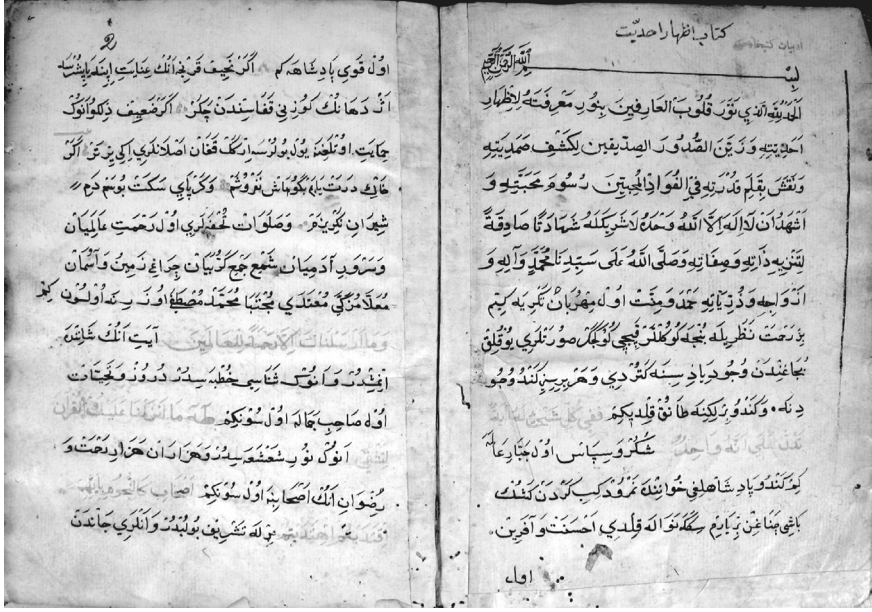 كتاب اظهار احديت
ادبيات
بسم الله الرحمن الرحيم
الحمد لله الذي نور قلوب العارفين بنور معرفته لاظهار
احديته وزين الصدور الصديقين لكشف صمديته
ونقش بقلم قدرته في الفواد المحبين رسوم محبته و
اشهد ان لا اله الا الله وحده لا شريك له شهادتا صادقة
لتنزيه ذاته وصفاته وصلى الله على سيدنا محمد وآله و
ازواجه وذرياته حمد ومنت اول مهربان تكريه كيم
بر رحمت نظريله نيجه كوكللر كوكجك صورتلري يوقلق
بوجاغندن وجود يادسينه كتردي وهر برسن كندو وجو
دنه وكندو برلكنه طانق قلدي كيم ففي كل شيء له آية
تدل على انه واحد شكر وسپاس اول جبار عا
كيم كندو پادشاهلغي نمرود كردن
باشي بر يارم سكك نواله قلدي احسنت وآفرين
اول
2
اول قوي پادشاهه كم اكر نحيف قرنجه انك عنايت ايپنه ياپشسه
اژدهانك كوزني قفاسندن چكر اكر ضعيف ديلكو انوك
حمايت يول بولورسه اصلانلري ايكي يرتر اكر
وكر پاي
شيران وصلوات تحفه لري اول رحمت عالميان
وسرور آدميان شمع جمع كروبيان چراغ زمين وآسمان
معلا مزكي مجتبا محمد مصطفى اوزرينه اولسون كيم
وما ارسلناك الا رحمة للعالمين آيت انك شاننده
انمشدر وانوك ثناسي خطبه سيدر درود وتحيات
اول صاحب جماله اولسونكيم طه ما انزلنا عليك القرآن
لتشقى انوك نور شعشعه سيدر وهزاران هزار رحمت و
رضوان انك اصحابنه اولسونكم اصحابي كالنجوم بايهم
اقتديتم اهتديتم برله تشريف بولبدر وانلري جاندن